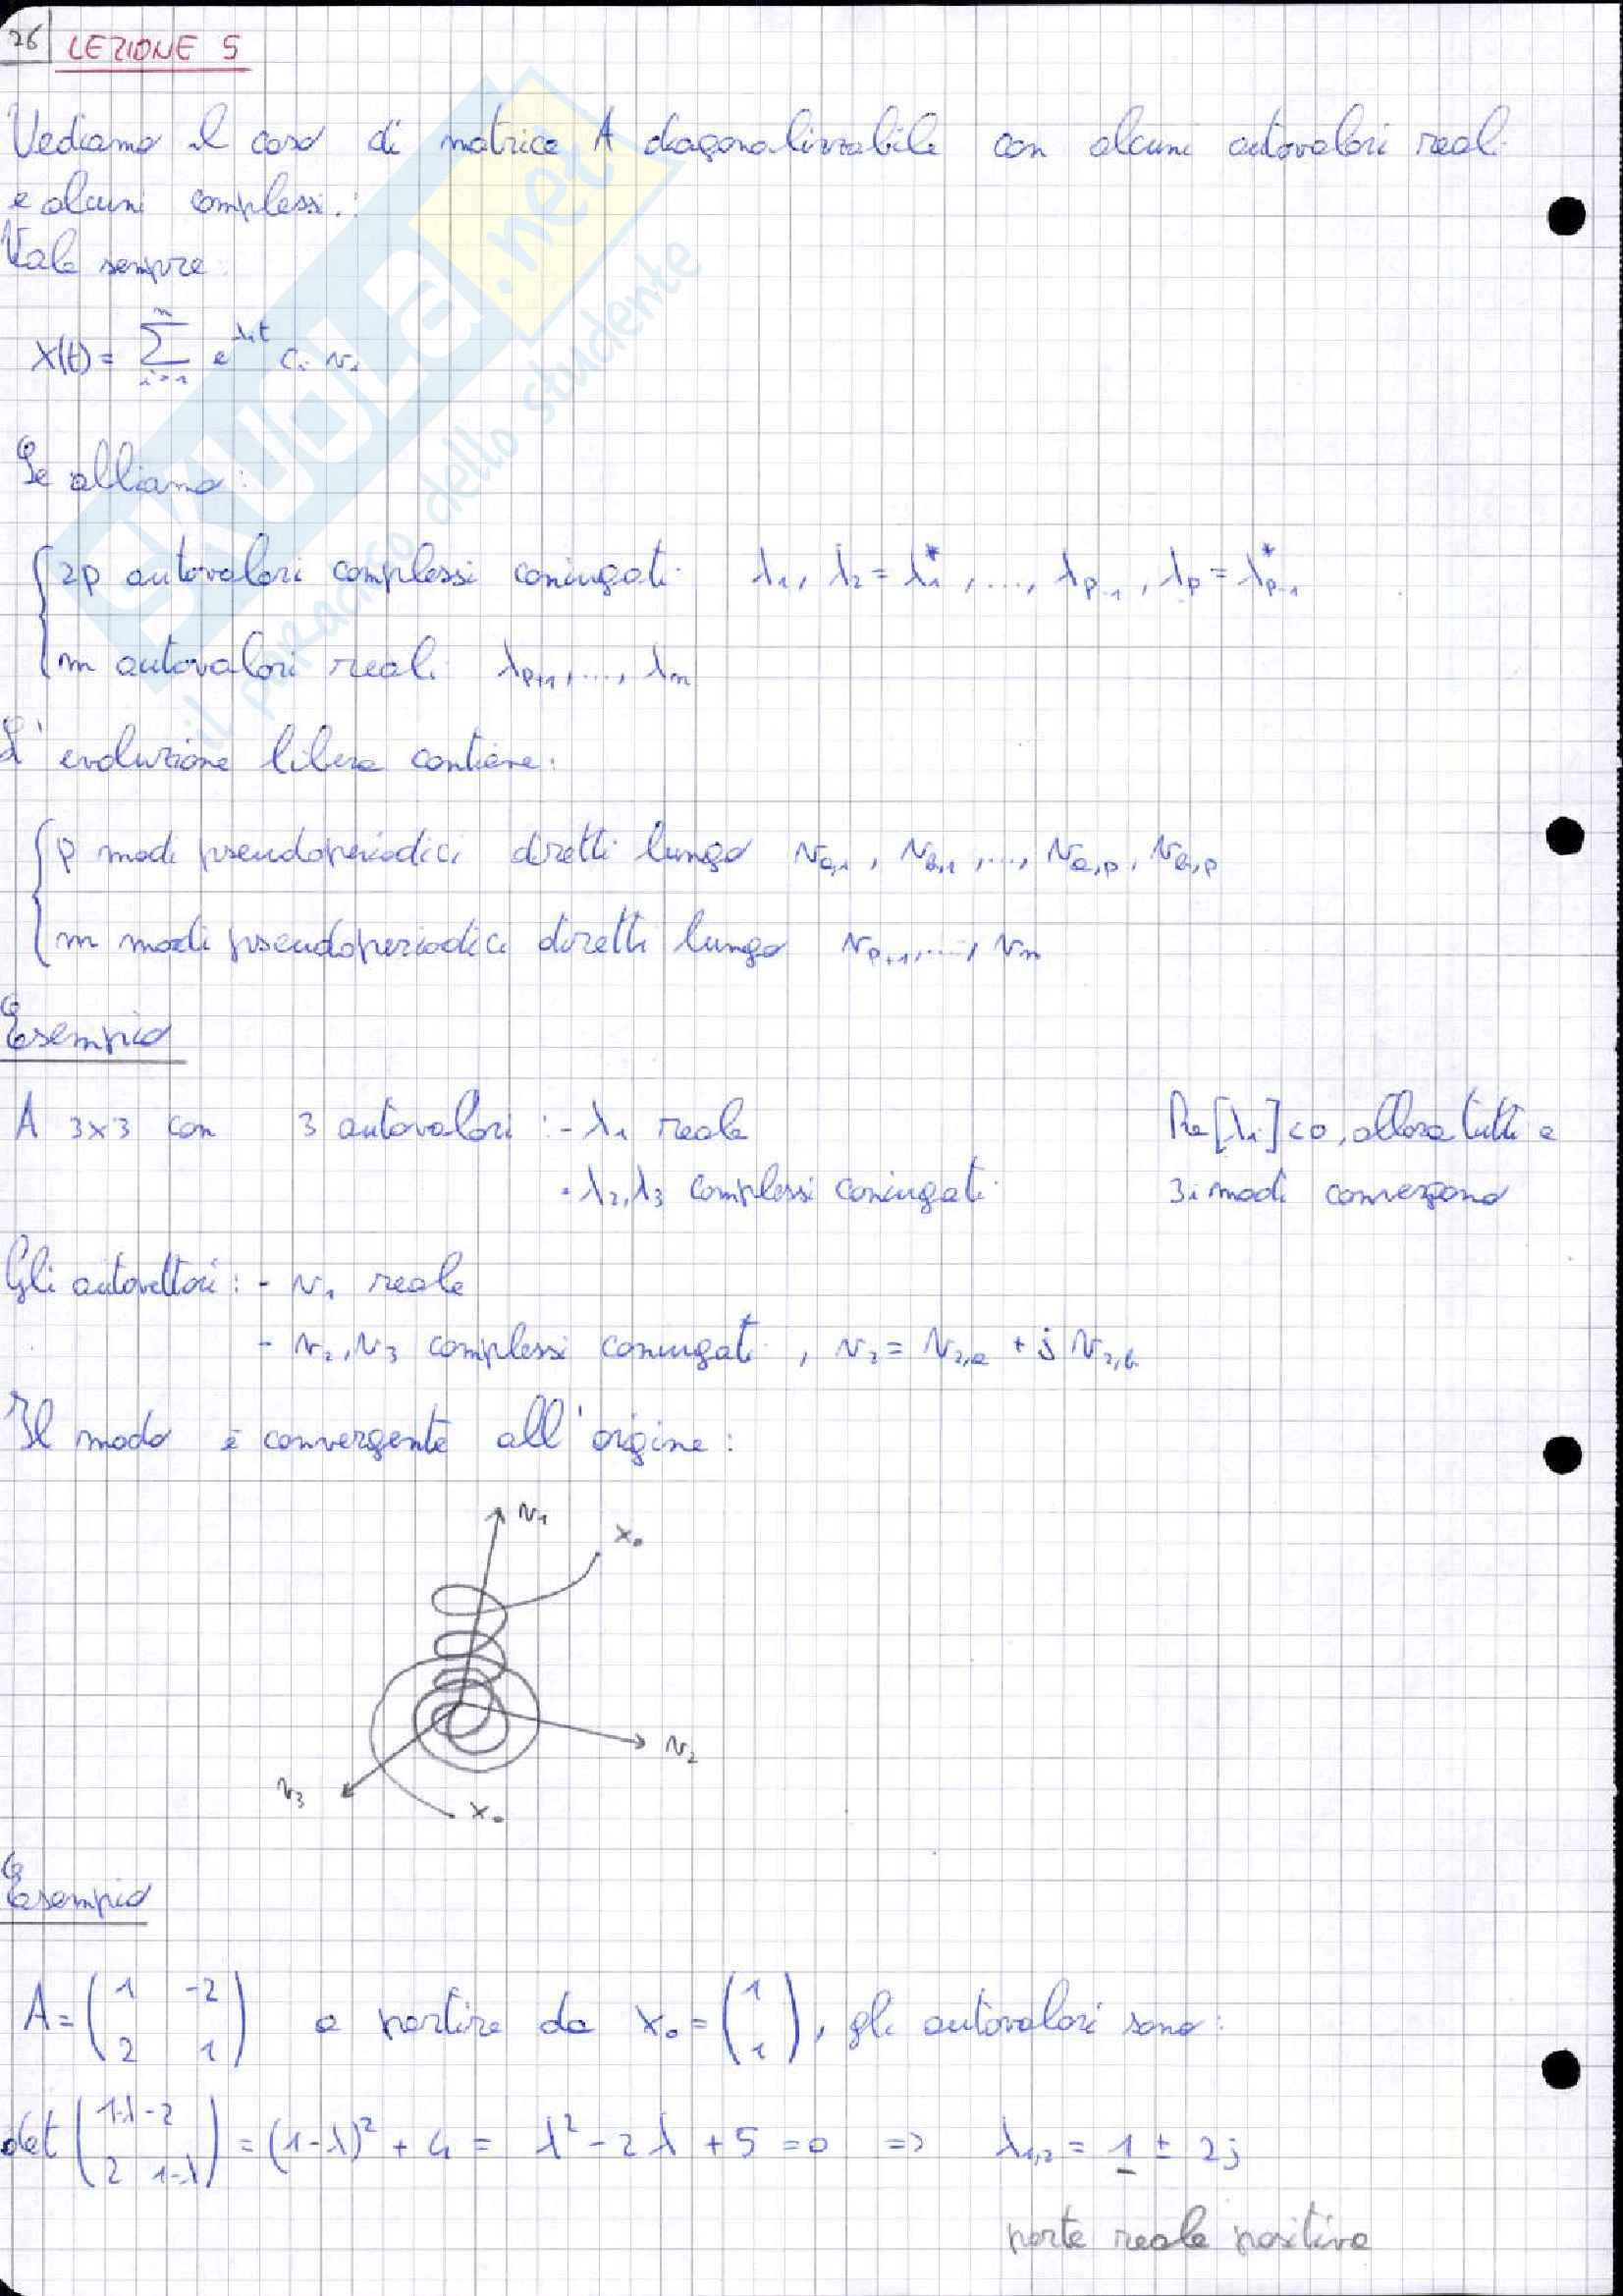 26 LEZIONE 5
Vediamo il caso di matrice A diagonalizzabile con alcuni autovalori reali
e alcuni complessi.:
Vale sempre:
x(t) = Σ_{i=1}^{n} e^{λit} ci vi
Se abbiamo:
2p autovalori complessi coniugati λ1, λ2 = λ1*, ..., λp-1, λp = λ*p-1
m autovalori reali λp+1, ..., λn
L'evoluzione libera contiene:
p modi pseudoperiodici diretti lungo va,1, vb,1, ..., va,p, vb,p
m modi pseudoperiodici diretti lungo vp+1, ..., vn
Esempio
A 3x3 con 3 autovalori: - λ1 reale Re[λi]<0, allora tutti e
- λ2, λ3 complessi coniugati 3 i modi convergono
Gli autovettori: - v1 reale
- v2, v3 complessi coniugati, v2 = v2,a + j v2,b
Il modo è convergente all'origine:
v1
x0
v2
v3
x0
Esempio
A = (1 -2; 2 1) a partire da x0 = (1; 1), gli autovalori sono:
det (1-λ -2; 2 1-λ) = (1-λ)² + 4 = λ² - 2λ + 5 = 0 => λ1,2 = 1 ± 2j
parte reale positiva
SKUOLA.net
il paradiso dello studente